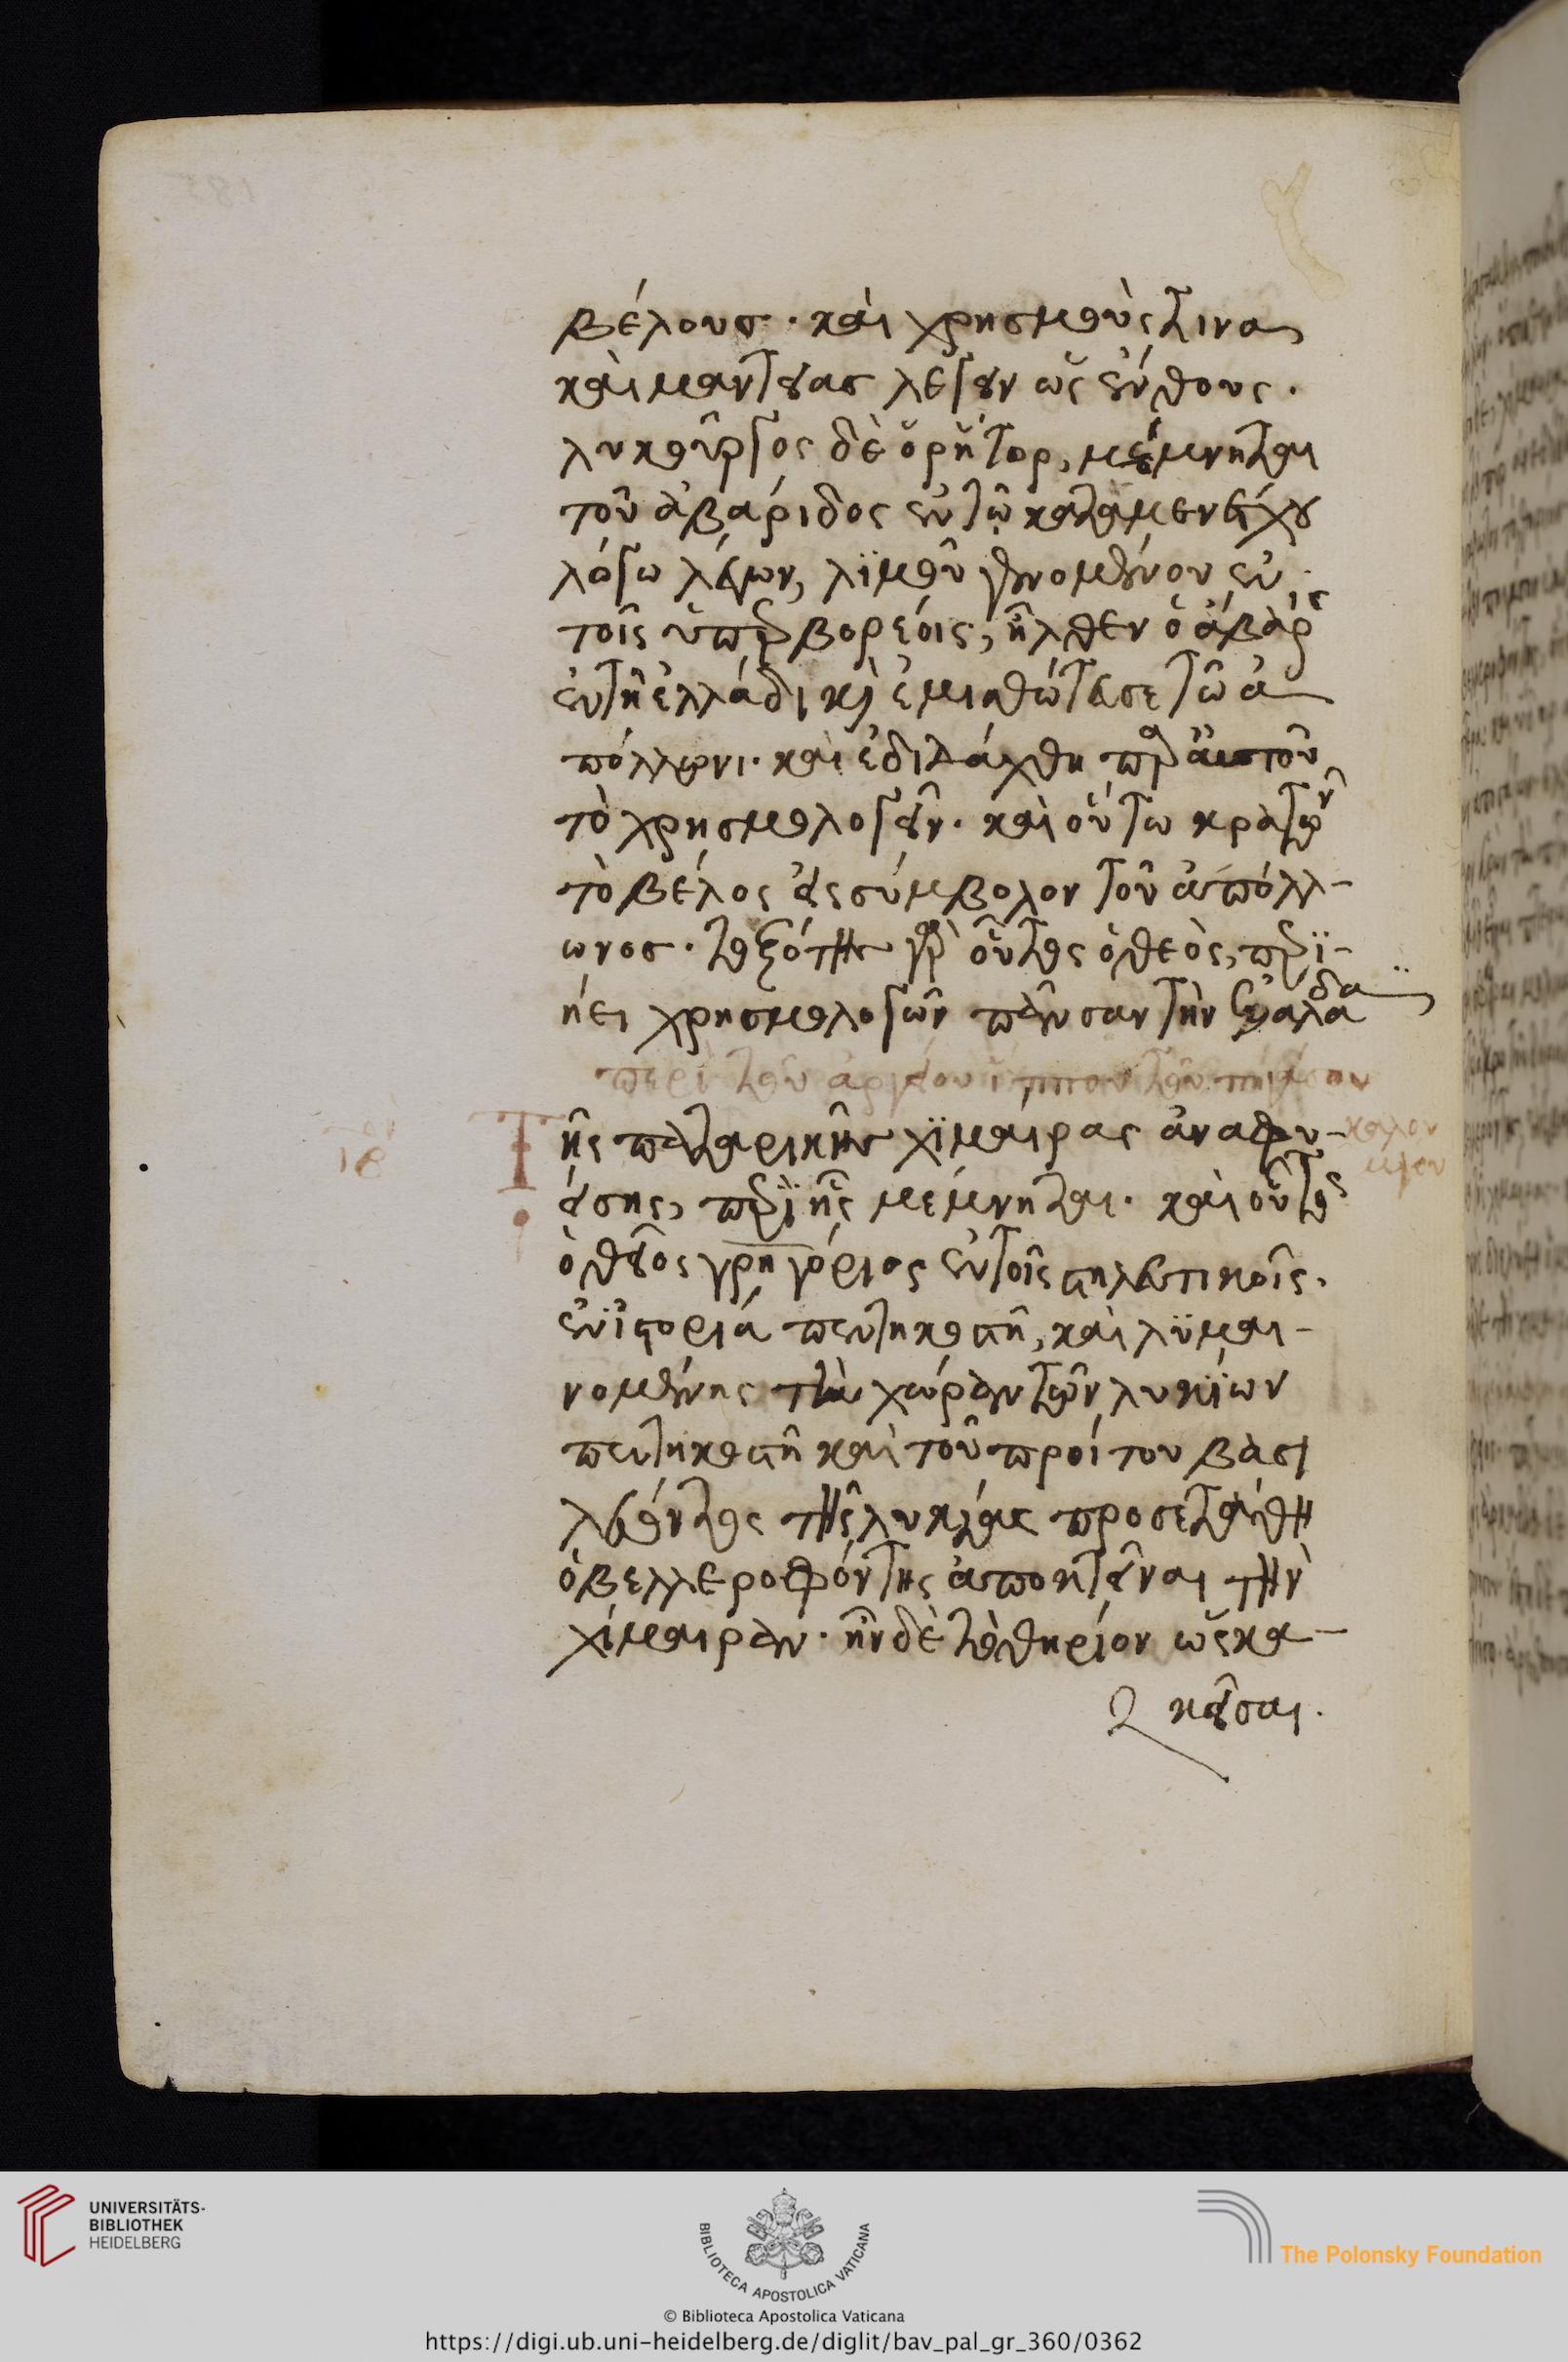 βέλους. καὶ χρησμοὺς τινας
καὶ μαντείας λέγειν ὡς ἔνθους.
λυκοῦργος δὲ ὁ ῥήτορ, μέμνηται
τοῦ ἀβάριδος ἐν τῷ κατὰ μενεσαίχου
λόγω λέγων, λϊμοῦ γενομένου ἐν
τοῖς ὑπερβορέοις, ἦλθεν ὁ ἄβαρις
ἐν τῆ ἑλλάδι καὶ ἐμισθώτευσε τῶ ἀ
πόλλωνι. καὶ ἐδιδάχθη παρ' αυτοῦ
τὸ χρησμολογεῖν. καὶ οὕτω κρατῶν
τὸ βέλος ὡς σύμβολον τοῦ ἀπόλλ-
ωνος. τοξότης γὰρ οὗτος ὁ θεὸς, περϊ-
ήει χρησμολογῶν πᾶσαν τὴν ἑλλάδα
περὶ τοῦ ἀρίστου ἵππου τοῦ πηγάσου
Τῆς παταρικῆς χϊμαίρας ἀναφυ-
είσης, περὶ ἧς μέμνηται. καὶ οὗτος
ὁ θεῖος γρηγόριος ἐν τοῖς στηλιτευτικοῖς.
ἐν ἱστορία πεντηκοστῆ, καὶ λϋμαι-
νομένης τὴν χώραν τῶν λυκίων
πεντηκοστῆ καὶ τοῦ προίτου βασι
λεύοντος τῆς λυκίας προσετάχθη
ὁ βελλεροφόντης ἀποκτεῖναι τὴν
χίμαιραν. ἦν δὲ τὸ θηρίον ὡς κα-
καῦσαι.
καλου
μένου
182
UNIVERSITÄTS-
BIBLIOTHEK
HEIDELBERG
BIBLIOTECA APOSTOLICA VATICANA
The Polonsky Foundation
© Biblioteca Apostolica Vaticana
https://digi.ub.uni-heidelberg.de/diglit/bav_pal_gr_360/0362